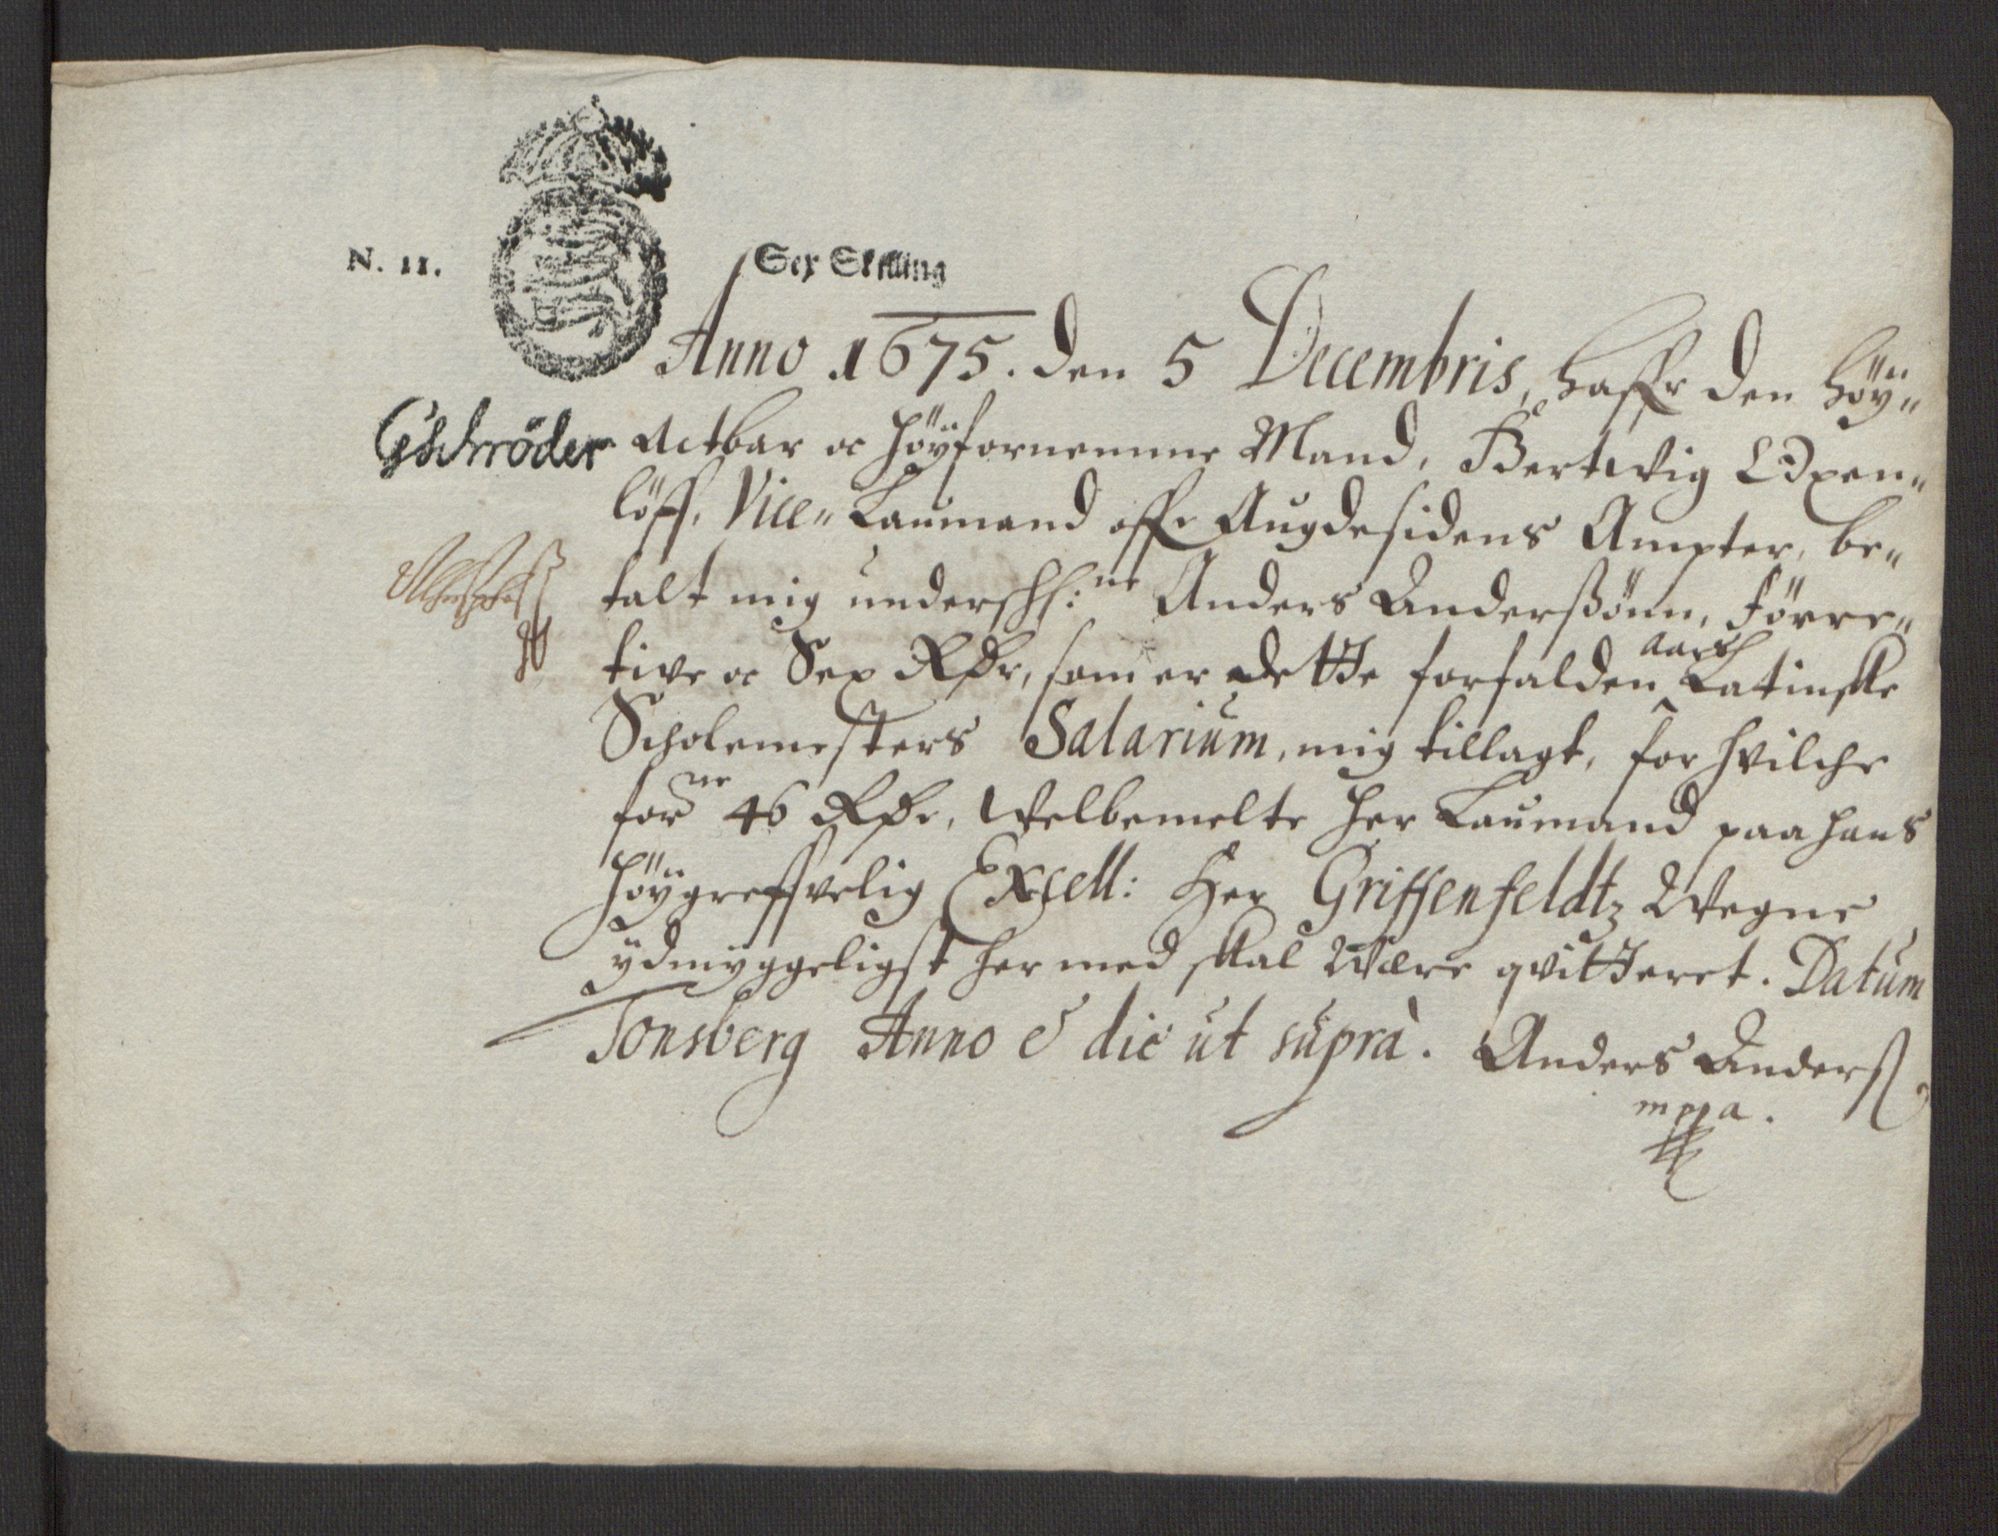 N. 11.
Sex Skilling
Anno 1675. den 5 Decembris, haffr den höÿ„
GSchrøder
Actbar oc höÿfornemme Mand, Bertwig Oxen„
löff, Vice„ Laumand offr Augdesidens Ampter, be„
talt mig underschr:ne Anders Anderßönn, Förre„
tive oc Sex Rdr, som er dette forfalden Aars Latinske
Scholemesters Salarium, mig tillagt, for hvilche
forne 46 Rdr, Welbemelte Her Laumand paa hans
Höÿgreffvelig Excell: Her Griffenfeldtz Wegne
ydmyggeligst her med skal Wære qvitteret. Datum
Tonsberg Anno & die ut suprà. Anders Anderß
mppa.